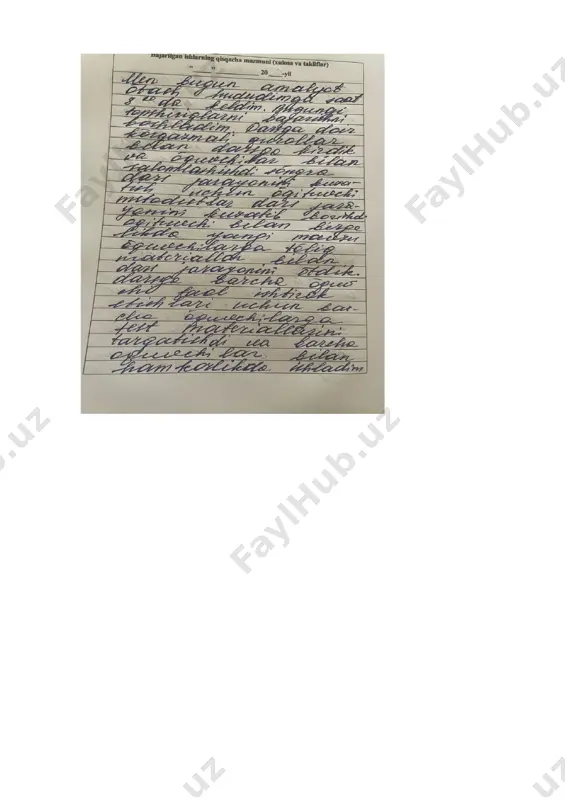 Bajarilgan ishlarning qisqacha mazmuni (xulosa va takliflar)
"____" ____________ 20____-yil
Men bugun amalyot
o'tash hududimga saat
8 00 da keldim. Bugungi
topshiriqlarni bajarishni
boshladim. Darsga doir
ko'rgazmali qurollar
bilan darsga kirdik
va oquvchilar bilan
salomlashishdi so'ngra
dars jarayonini kuza-
tish uchun ögituvchi
metodistlar dars jara-
yonini kuzatib borishdi
ogituvchi bilan birga-
likda yangi mavzu
öquvchilarga töliq
materiallar bilan
dars jarayonini ötdik.
darsga barcha oquv-
chi faol ishtirok
etishlari uchun bar-
cha oquvchilarga
test materiallarini
tarqatishdi va barcha
oquvchilar bilan
hamkorlikda ishladim
FaylHub.uz
FaylHub.uz
FaylHub.uz